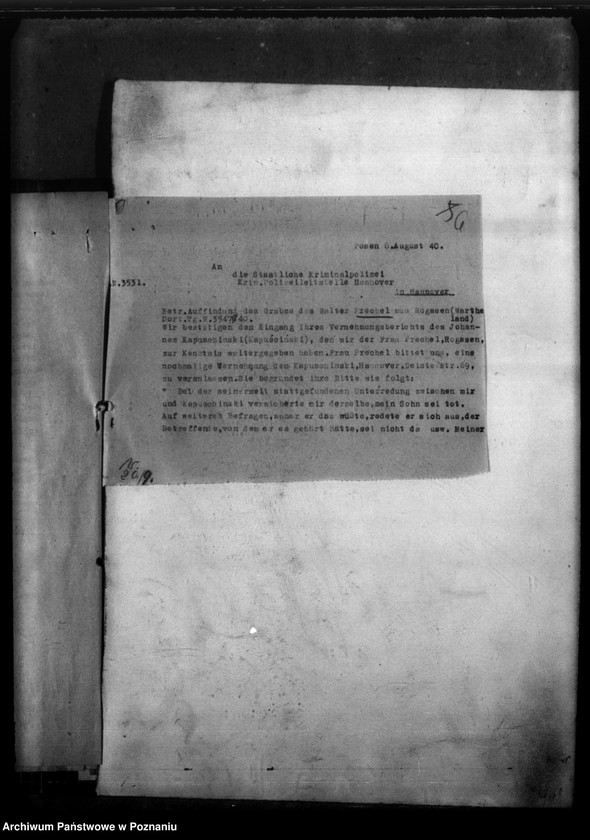 56
Posen 6.August 40.
An
die Staatliche Kriminalpolizei
Krim.Polizeileitstelle Hannover
in Hannover
B.3531.
Betr.Auffindung des Grabes des Walter Frechel aus Rogasen(Warthe
Dort.Tg.B. 40. land)
Wir bestätigen den Eingang Ihres Vernehmungsberichts des Johan-
nes Kapuschinski(Kapuściński), den wir der Frau Frechel,Rogasen,
zur Kenntnis weitergegeben haben.Frau Frechel bittet uns, eine
nochmalige Vernehmung des Kapuschinski,Hannover, str.69,
zu veranlassen.Sie begründet ihre Bitte wie folgt:
" Bei der seinerzeit stattgefundenen Unterredung zwischen mir
und Kapuschinski versicherte mir derselbe,mein Sohn sei tot.
Auf weiteres Befragen,woher er das wüßte,redete er sich aus,der
Betreffende,von dem er es gehört hätte,sei nicht da usw. Meiner
Archiwum Państwowe w Poznaniu